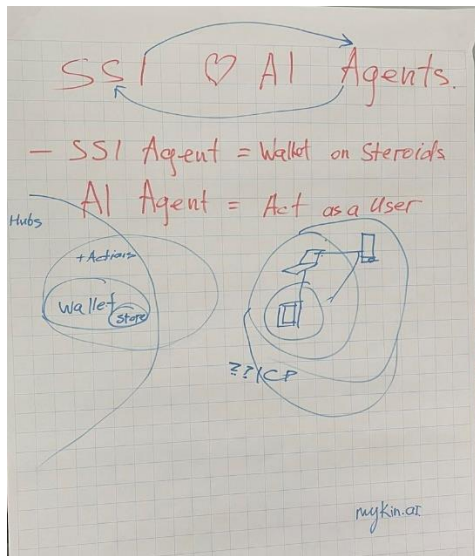 SSI ♡ AI Agents.
— SSI Agent = Wallet on Steroids
AI Agent = Act as a User
Hubs
+Actions
Wallet
Store
??/CP
mykin.ai